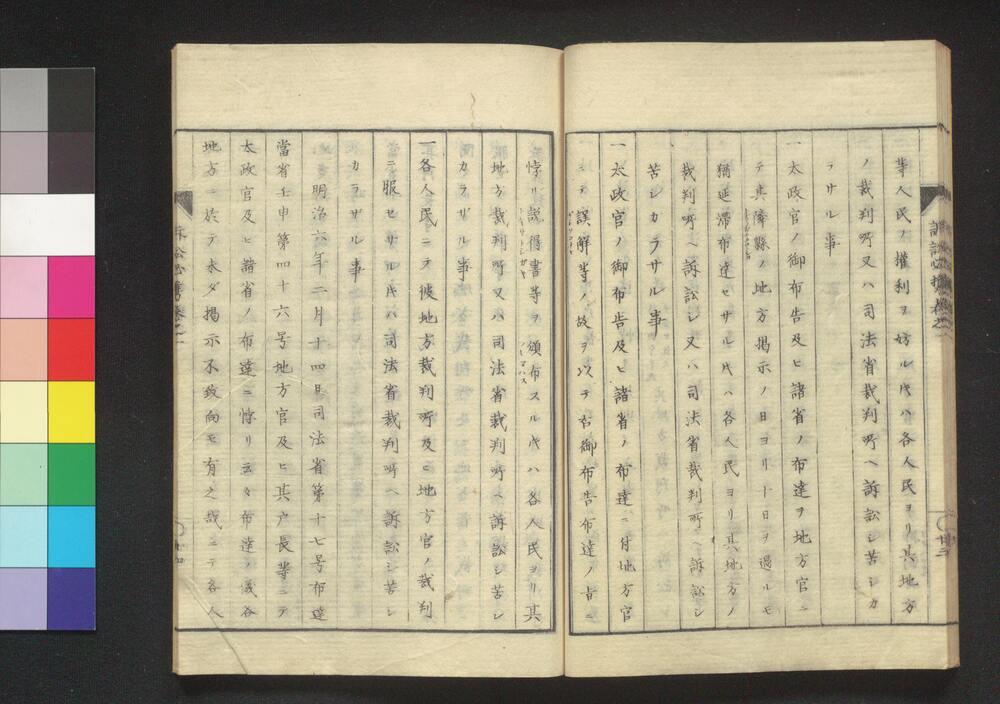 等人民ノ權利ヲ妨ル片ハ各人民ヨリ其地方
ノ裁判所又ハ司法省裁判所ヘ訴訟シ苦シカ
ラサル事
一太政官ノ御布告及ヒ諸省ノ布達ヲ地方官ニ
テ其隣縣ノ地方揭示ノ日ヨリ十日ヲ過ルモ
猶延滯布達セサル片ハ各人民ヨリ其地方ノ
裁判所ヘ訴訟シ又ハ司法省裁判所ヘ訴訟シ
苦シカラサル事
一太政官ノ御布告及ヒ諸省ノ布達ニ付地方官
ニテ誤解等ノ故ヲ以テ右御布告布達ノ旨ニ
悖リ說得書等ヲ頒布スル片ハ各人民ヨリ其
地方裁判所又ハ司法省裁判所ヘ訴訟シ苦シ
カラザル事
一各人民ニテ彼地方裁判所及ヒ地方官ノ裁判
ニ服セサル片ハ司法省裁判所ヘ訴訟シ苦シ
カラザル事
明治六年二月十四日司法省第十七号布達
當省壬申第四十六号地方官及ヒ其戸長等ニテ
太政官及ヒ諸省ノ布達ニ悖リ云々布達ノ儀各
地方ニ於テ未ダ揭示不致向モ有之哉ニテ各人